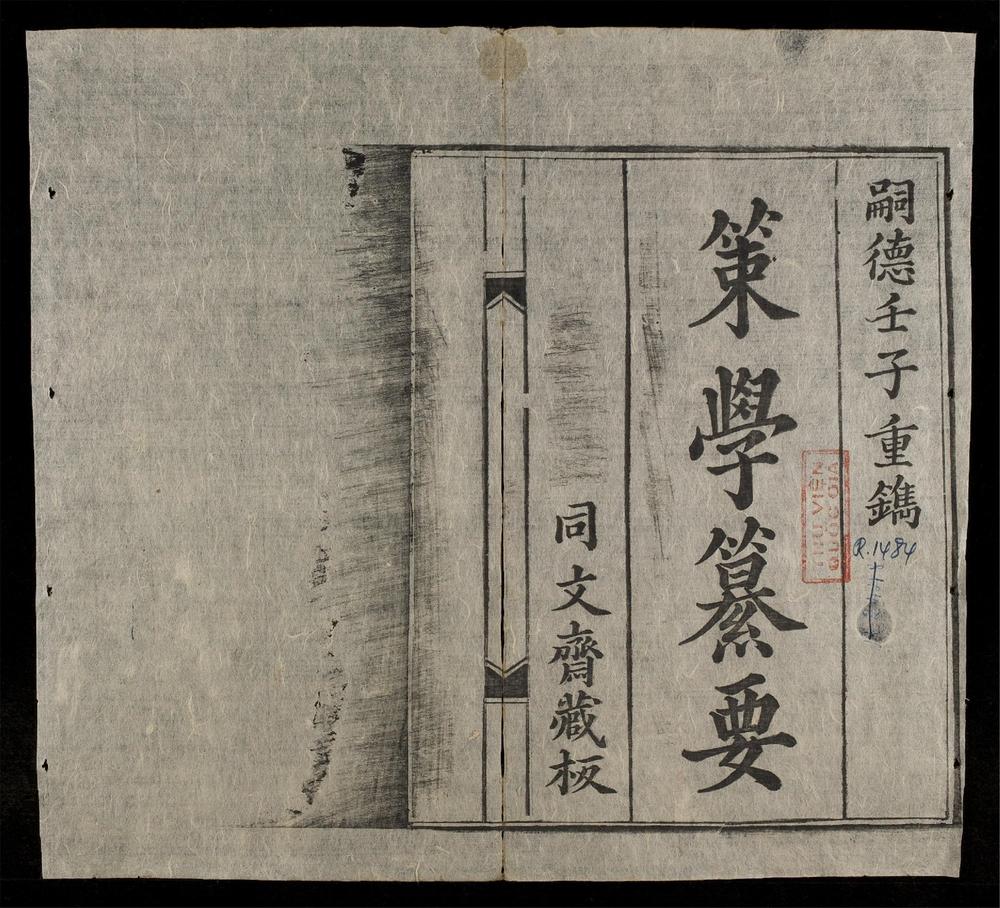 嗣德壬子重鐫
策學纂要
同文齋藏板
THƯ VIỆN
QUỐC GIA
R.1484